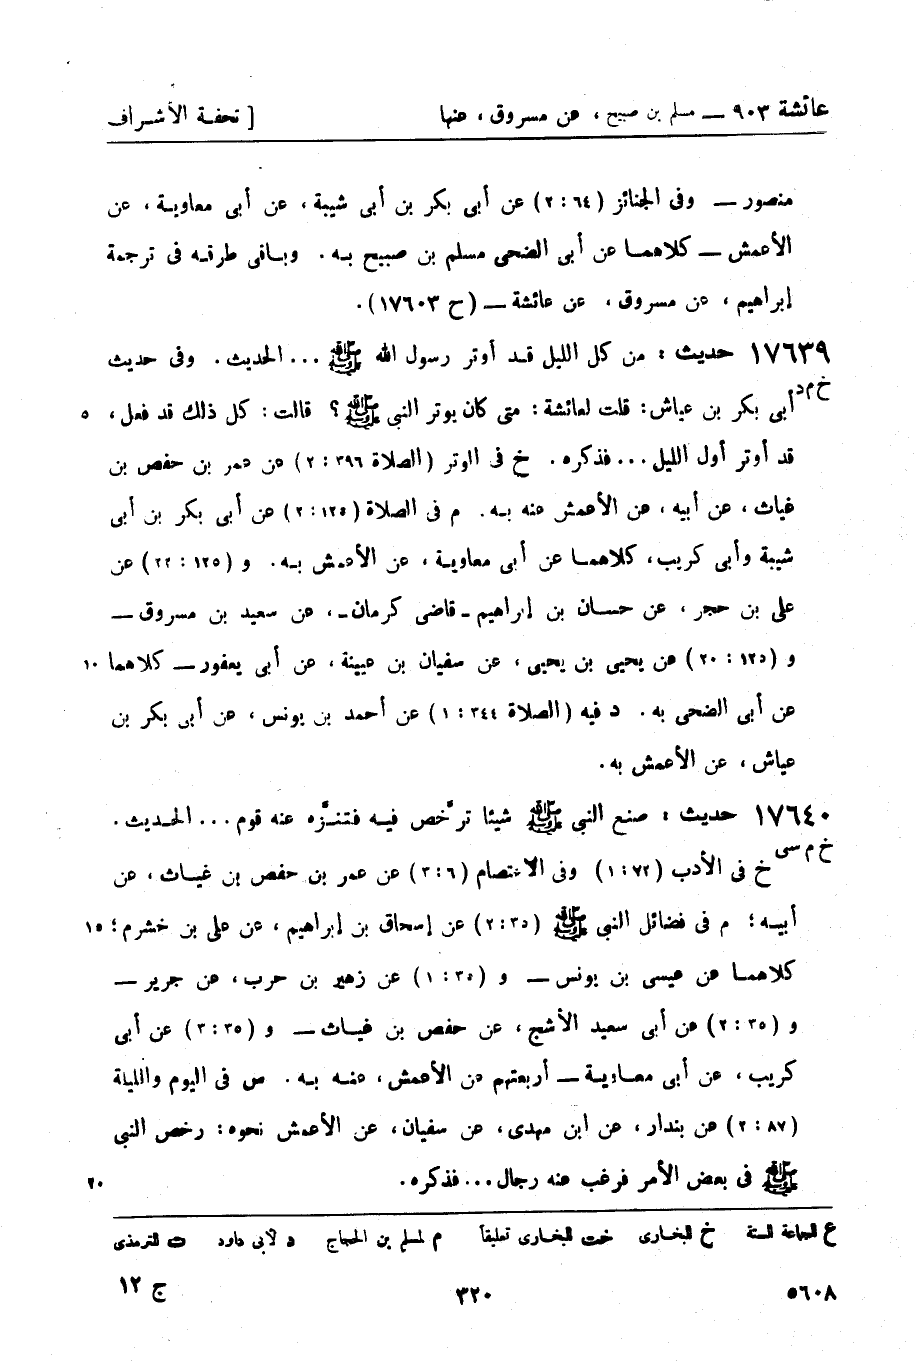 عائشة ٩٠٣ — مسلم بن صبيح، عن مسروق، عنها [ تحفة الأشراف
منصور — وفى الجنائز (٦٤ : ٢) عن أبى بكر بن أبى شيبة، عن أبى معاوية، عن
الأعمش — كلاهما عن أبى الضحى مسلم بن صبيح به. وباقى طرقه فى ترجمة
إبراهيم، عن مسروق، عن عائشة — (ح ١٧٦٠٣).
١٧٦٣٩ حديث : من كل الليل قد أوتر رسول الله ﷺ ... الحديث. وفى حديث
خ م د
أبى بكر بن عياش: قلت لعائشة: متى كان يوتر النبى ﷺ؟ قالت: كل ذلك قد فعل، ٥
قد أوتر أول الليل ... فذكره. خ فى الوتر (الصلاة ٣٩٦ : ٢) عن عمر بن حفص بن
غياث، عن أبيه، عن الأعمش عنه به. م فى الصلاة (١٢٥ : ٢) عن أبى بكر بن أبى
شيبة وأبى كريب، كلاهما عن أبى معاوية، عن الأعمش به. و (١٢٥ : ٢٢) عن
على بن حجر، عن حسان بن إبراهيم ـ قاضى كرمان ـ، عن سعيد بن مسروق —
و (١٢٥ : ٢٠) عن يحيى بن يحيى، عن سفيان بن عيينة، عن أبى يعفور — كلاهما ١٠
عن أبى الضحى به. د فيه (الصلاة ٣٤٤ : ١) عن أحمد بن يونس، عن أبى بكر بن
عياش، عن الأعمش به.
١٧٦٤٠ حديث : صنع النبى ﷺ شيئا ترخّص فيه فتنزّه عنه قوم ... الحديث.
خ م سى
خ فى الأدب (٧٢ : ١) وفى الاعتصام (٦ : ٣) عن عمر بن حفص بن غياث، عن
أبيه؛ م فى فضائل النبى ﷺ (٣٥ : ٢) عن إسحاق بن إبراهيم، عن على بن خشرم؛ ١٥
كلاهما عن عيسى بن يونس — و (٣٥ : ١) عن زهير بن حرب، عن جرير —
و (٣٥ : ٢) عن أبى سعيد الأشج، عن حفص بن غياث — و (٣٥ : ٣) عن أبى
كريب، عن أبى معاوية — أربعتهم عن الأعمش، عنه به. س فى اليوم والليلة
(٨٧ : ٢) عن بندار، عن ابن مهدى، عن سفيان، عن الأعمش نحوه: رخص النبى
ﷺ فى بعض الأمر فرغب عنه رجال ... فذكره. ٢٠
ع للجماعة الستة خ للبخارى خت للبخارى تعليقاً م لمسلم بن الحجاج د لأبى داود ت للترمذى
٥٦٠٨ ٣٢٠ ج ١٢